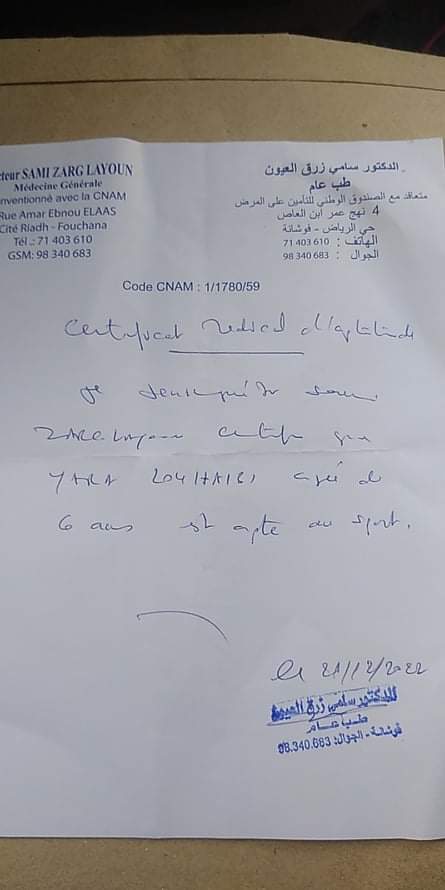 cteur SAMI ZARG LAYOUN
Médecine Générale
nventionné avec la CNAM
Rue Amar Ebnou ELAAS
Cité Riadh - Fouchana
Tél .: 71 403 610
GSM: 98 340 683
الدكتور سامي زرق العيون
طب عام
متعاقد مع الصندوق الوطني للتأمين على المرض
4 نهج عمر ابن العاص
حي الرياض - فوشانة
الهاتف : 71 403 610
الجوال : 98 340 683
Code CNAM : 1/1780/59
Certificat Medical d'aptitude
Je soussigné Dr Sami
ZARG Layoun certifie que
YARA agée de
6 ans est apte au sport.
le 21/12/2022
الدكتور سامي زرق العيون
طب عام
فوشانة - الجوال: 98.340.683